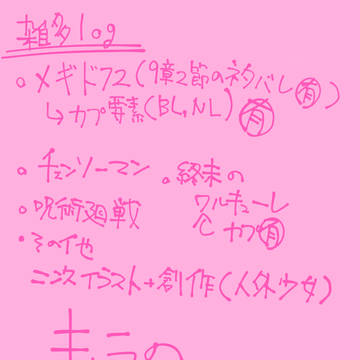 雑多log
○メギド72(9章2節のネタバレ有)
↳カプ要素(BL,NL)有
○チェンソーマン
○終末のワルキューレ
↳カプ有
○呪術廻戦
・その他
二次イラスト+創作(人外少女)
キャラの